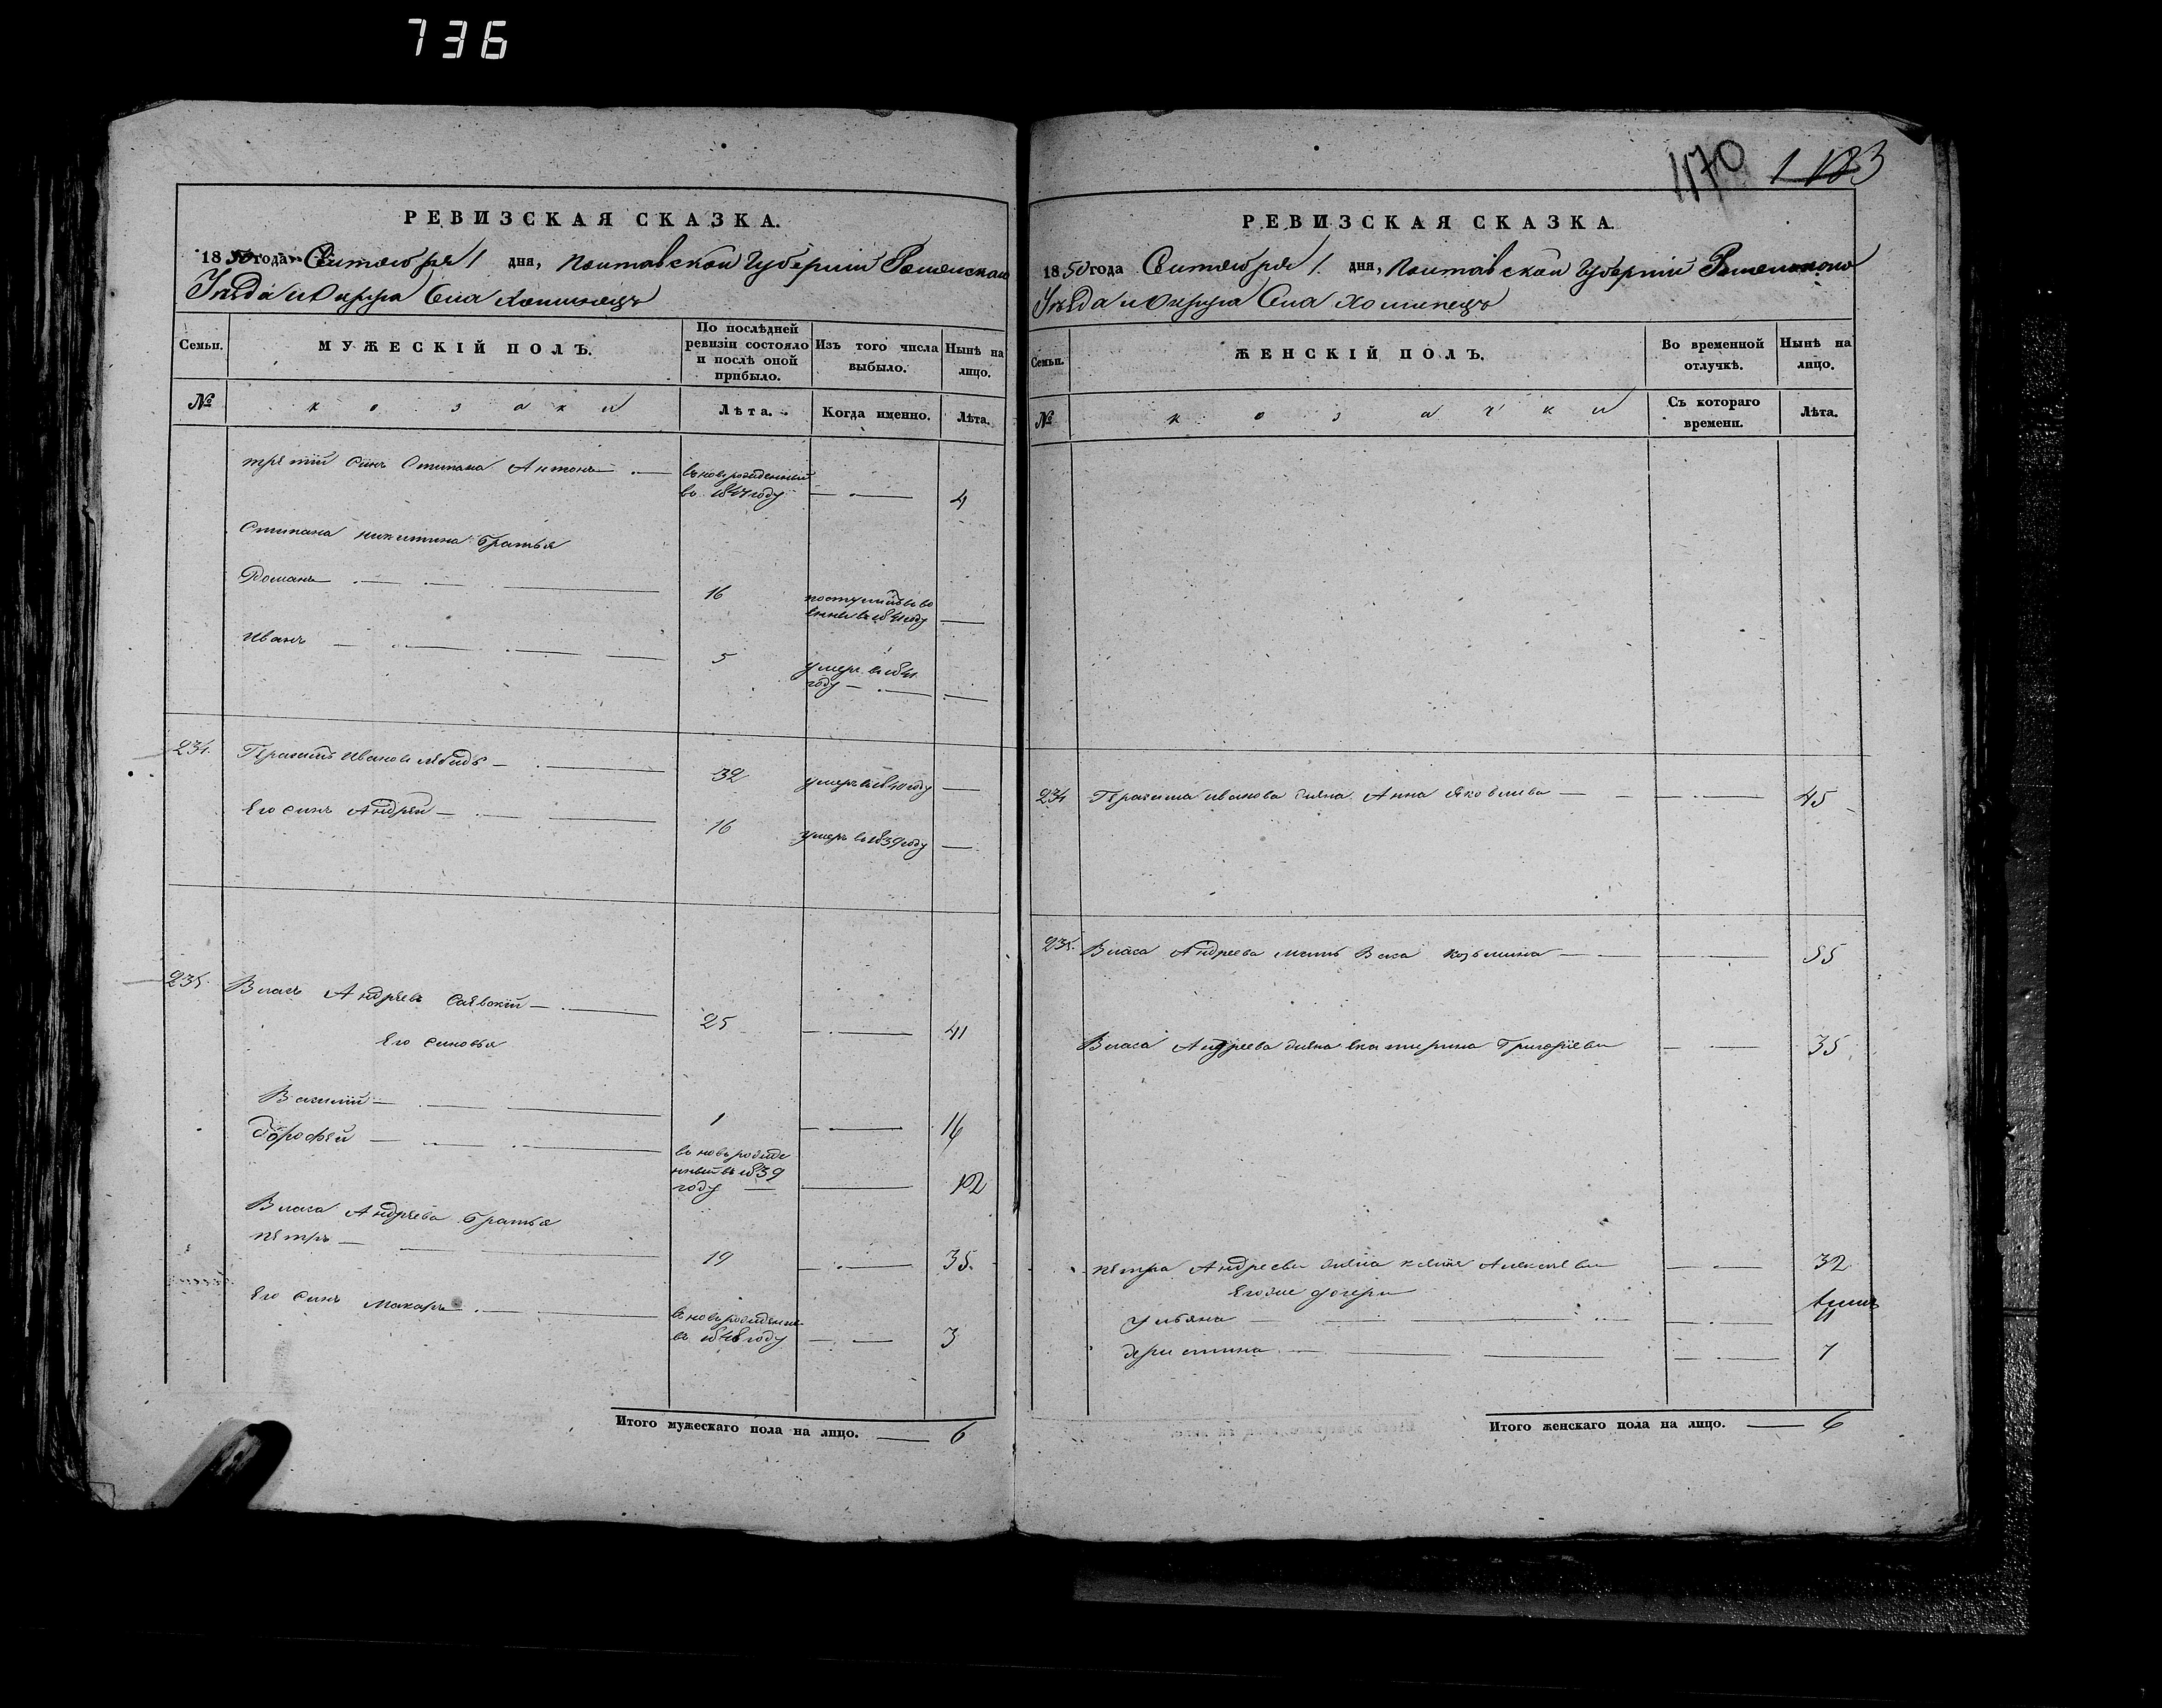 736
РЕВИЗСКАЯ СКАЗКА.
1850 года Сентября 1 дня, Полтавской Губернии Роменского
Уезда и Округа Села Хоминецъ
Семьи.
МУЖЕСКІЙ ПОЛЪ.
По послѣдней ревизіи состояло и послѣ оной прибыло.
Изъ того числа выбыло.
Нынѣ на лицо.
№
козаки
Лѣта.
Когда именно.
Лѣта.
третій Синъ Стипана Антонъ
вновь рожденный
въ 1847 году
4
Стипана Никитина братья
Романъ
16
Иванъ
5
умеръ въ 1841
году
234.
Герасимъ Ивановъ
32
умеръ въ 1840 году
Его Синъ Андрей
16
умеръ въ 1839 году
235.
Власъ Андреевъ
25
41
Его Синовья
Василій
1
14
Дорофей
вновь рожде
нный въ 1839
году
12
Власа Андреева братья
Петръ
19
35.
Его Синъ Макаръ
вновь рожденный
въ 1848 году
3
Итого мужескаго пола на лицо. 6
470
1183
РЕВИЗСКАЯ СКАЗКА
1850 года Сентября 1. дня, Полтавской Губерніи Роменского
Уезда и Округа Села Хоминецъ
Семьи.
ЖЕНСКІЙ ПОЛЪ.
Во временной отлучкѣ.
Нынѣ на лицо.
№
козачки
Съ котораго времени.
Лѣта.
234 Герасима Иванова жена Анна Яковлива
45
235. Власа Андреева мать Васа Козьмина
55
Власа Андреева жена Екатирина Григоріева
35
Петра Андреева жена Алексѣева
32
Его же дочери
Ульяна
11
7
Итого женскаго пола на лицо. 6